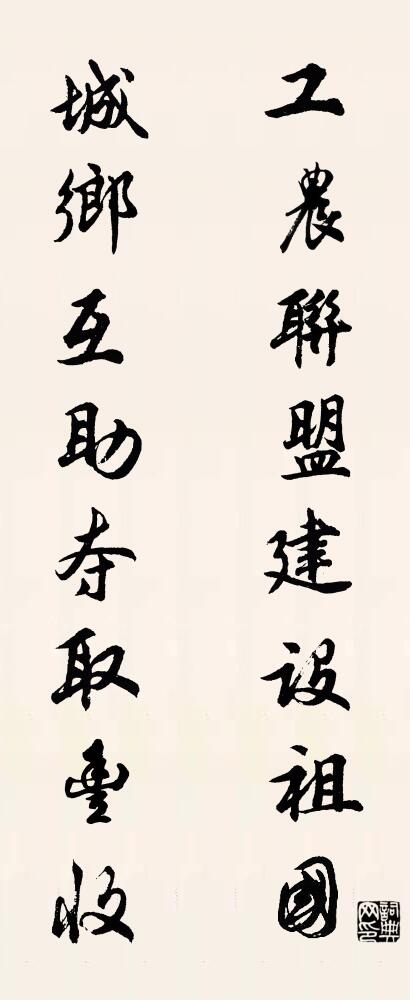 工農聯盟建設祖國
城鄉互助夺取豐收
詞典网印